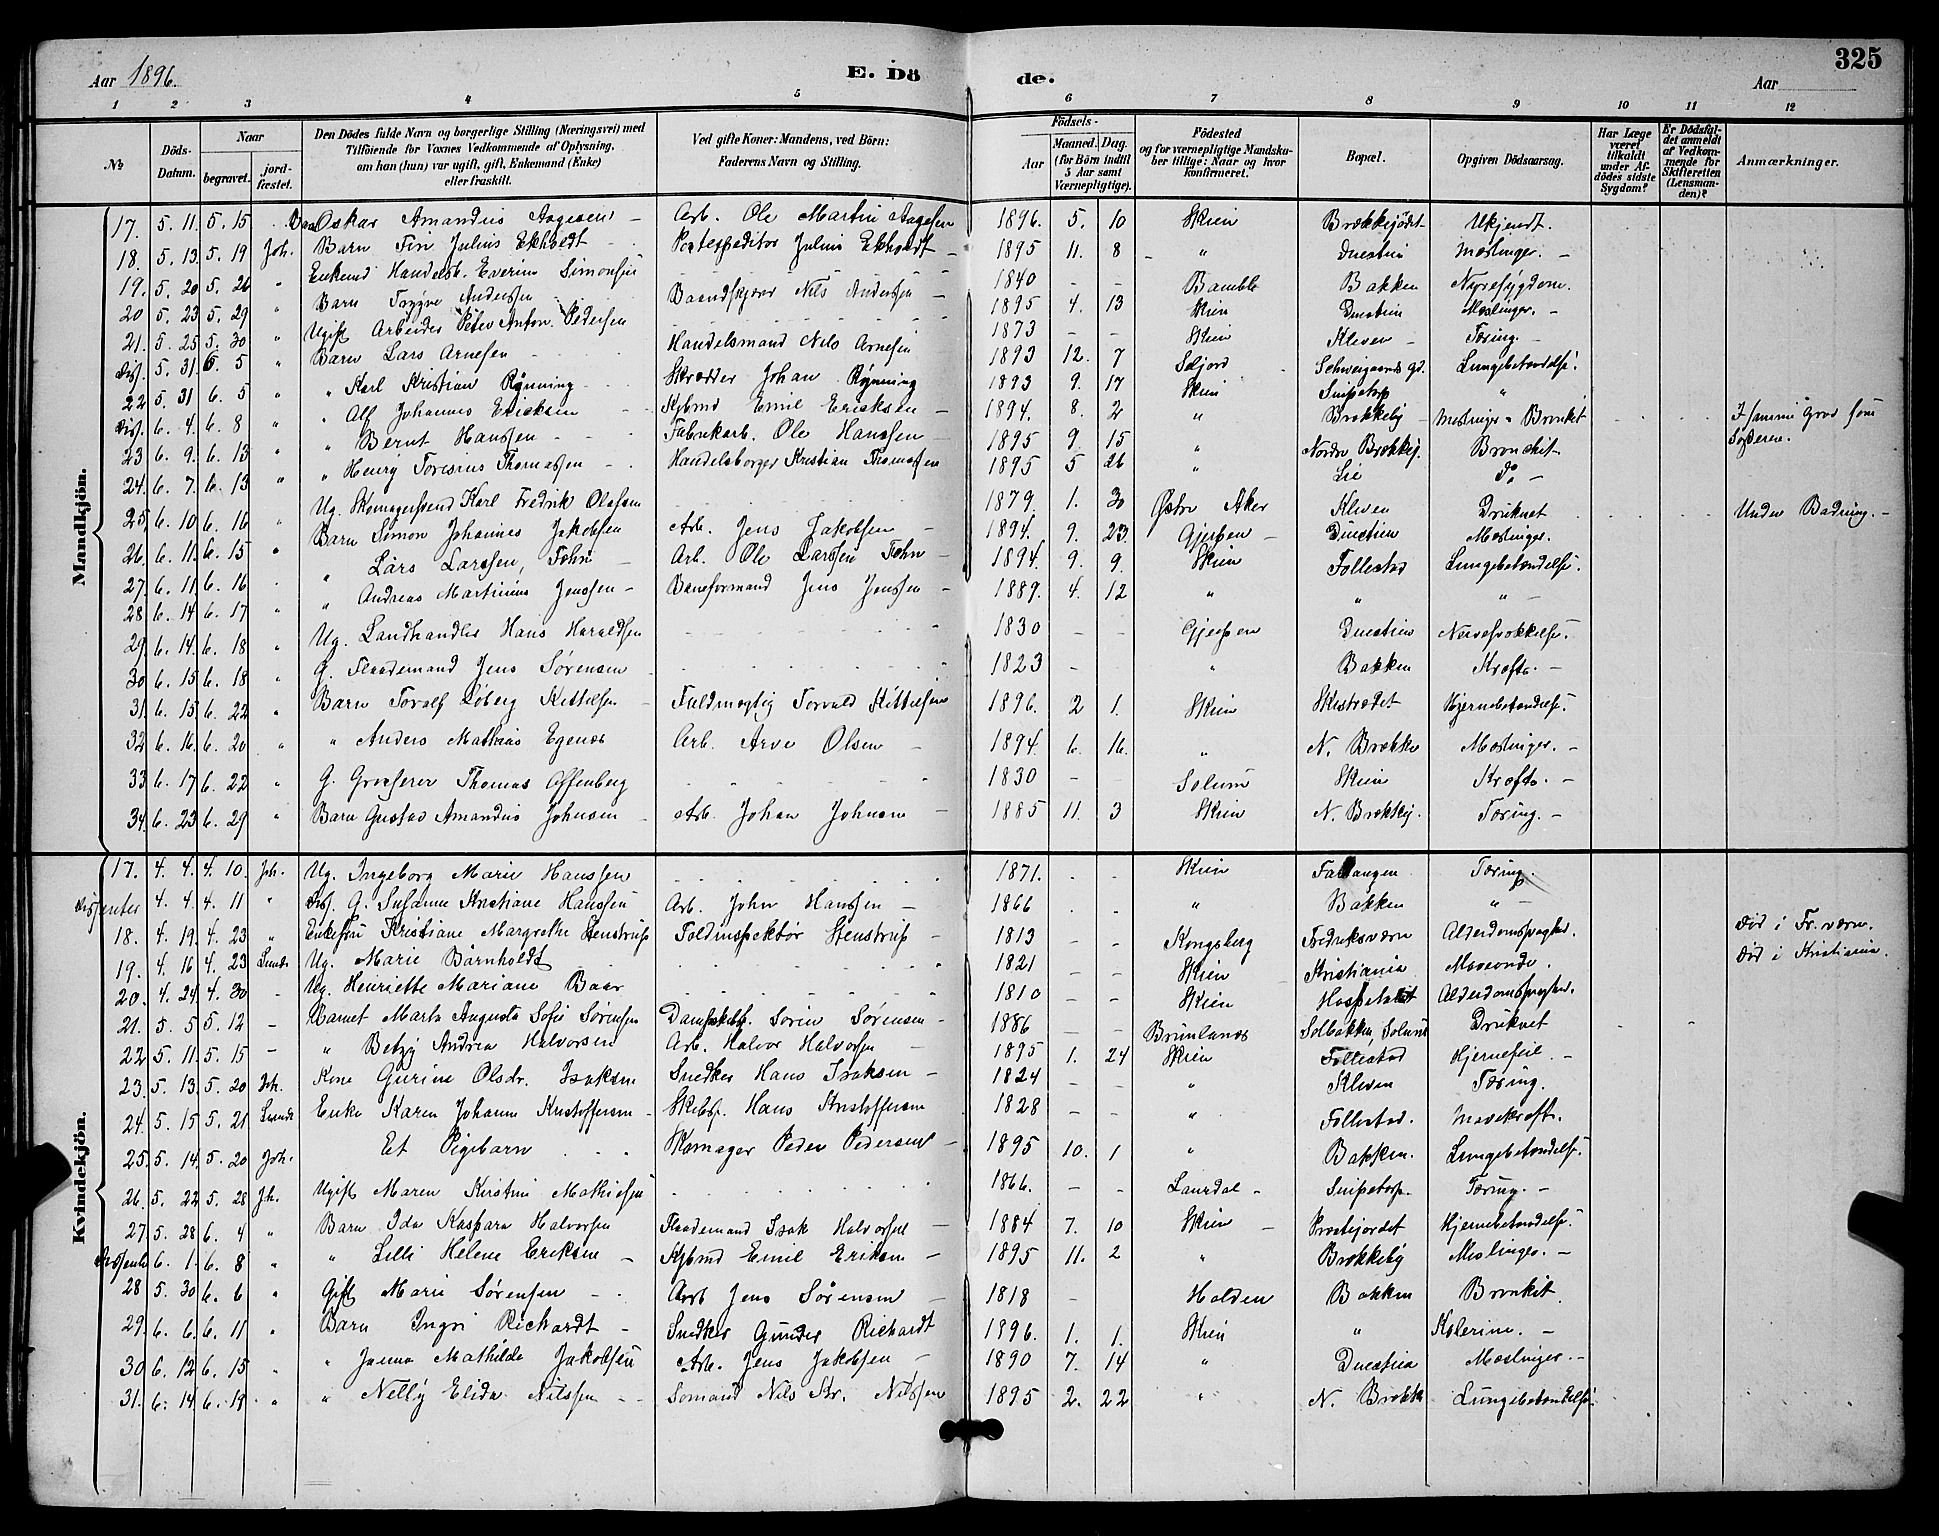 Aar 1896. E. Dö de. Aar 325
1 2 3 4 5 6 7 8 9 10 11 12
No Döds-Datum. Naar begravet. jordfæstet. Den Dödes fulde Navn og borgerlige Stilling (Næringsvei) med Tilföiende for Voxnes Vedkommende af Oplysning, om han (hun) var ugift, gift, Enkemand (Enke) eller fraskilt. Ved gifte Koner: Mandens, ved Börn: Faderens Navn og Stilling. Födsels- Aar Maaned. Dag. (for Börn indtil 5 Aar samt Værnepligtige). Födested og for værnepligtige Mandskaber tillige: Naar og hvor konfirmeret. Bopæl. Opgiven Dödsaarsag. Har Læge været tilkaldt under Afdödes sidste Sygdom? Er Dödsfaldet anmeldt af Vedkommende for Skifteretten (Lensmanden)? Anmærkninger.
Mandkjön.
17. 5. 11. 5. 15 Barn Oskar Amandus Aagesen Arb. Ole Martin Aagesen 1896. 5. 10 Skien Brækkejødet Ukjendt.
18. 5. 13. 5. 19 Joh. Barn Fin Julius Ekholdt Postexpeditor Julius Ekholdt 1895 11. 8 " Duestien Meslinger.
19. 5. 20 5. 26 " Enkemd Handelsb. Everin Simonsen 1840 - - Bamble Bakken Nyresygdom.
20 5. 23 5. 29 " Barn Trygve Anderssen Baandskjærer Nils Anderssen 1895 4. 13 Skien Duestien Meslinger.
21. 5. 25 5. 30 " Ugift Arbeider Peter Anton Pedersen 1873 - - Skien Kleven Tæring.
Diss. 5. 31 6. 5 " Barn Lars Arnesen Handelsmand Nils Arnesen 1893 12. 7 Seljord Schweigaards gd. Lungebetændelse.
22 5. 31 6. 5 " " Karl Kristian Rønning Skrædder Johan Rønning 1893 9. 17 Skien Snipetorp "
Diss. 6. 4 6. 8 " " Alf Johannes Ericksen Kjbmd Emil Ericksen 1894. 8. 2 " Brækkeby Meslinger Bronkit I samme Grav som Søsteren.
23 6. 9. 6. 13 " " Bernt Hanssen Fabrikarb. Ole Hanssen 1895 9. 15 " Nordre Brækkej. Bronchit
24. 6. 7. 6. 13 " " Henry Toresius Thomassen Handelsborger Kristian Thomassen 1895 5 26 " Lie Do
25. 6. 10 6. 16 " Ug. Skomagersvend Karl Fredrik Olafsen 1879. 1. 30 Østre Aker Kleven Druknet Under Badning.
26. 6. 11. 6. 15 " Barn Simon Johannes Jakobsen Arb. Jens Jakobsen 1894. 9. 23. Gjerpen Duestien Meslinger.
27. 6. 11 6. 16 " Lars Larssen, Føhn Arb. Ole Larssen Føhn 1894. 9. 9. Skien Follestad Lungebetændelse.
28. 6. 14 6. 17 " " Andreas Martinius Jenssen Baneformand Jens Jenssen 1889. 4. 12 " " "
29 6. 14. 6. 18 " Ug. Landhandler Hans Haraldsen 1830 - - Gjerpen Duestien Nervesvækkelse.
30 6. 15 6. 18 " G. Flaademand Jens Sørensen 1823 - " Bakken Kræft.
31. 6. 15 6. 22 " Barn Toralf Løberg Kittelsen Fuldmægtig Torvald Kittelsen 1896. 2 1. Skien Skistrædet Hjernebetændelse.
32 6. 16. 6. 20 " " Anders Mathias Egenes Arb. Arve Olsen 1894. 6. 16. " N. Brække Meslinger.
33. 6. 17 6. 22 " G. Grosserer Thomas Offenberg 1830 - - Solum Skien Kræft.
34. 6. 23 6. 29 " Barn Gustav Amandus Johnsen Arb. Johan Johnsen 1885 11. 3 Skien N. Brækkej. Tæring.
Kvindekjön.
17. 4. 4. 4. 10. Joh. Ug. Ingeborg Marie Hanssen 1871. Skien Falkangen Tæring.
Dissenter 4. 4. 4. 11 " Diss. G. Susanne Kristiane Hanssen Arb. John Hanssen 1866 " Bakken "
18. 4. 19. 4. 23 " Enkefru Kristiane Margrethe Stenstrup Toldinspektør Stenstrup 1813 - - Kongsberg Fredriksværn Alderdomssvaghed. Død i Fr.værn.
19. 4. 16 4. 23 Lunde Ug. Marie Bårnholdt 1821 - - Skien Kristiania Maveonde. Død i Kristiania.
20. 4. 24 4. 30 - Ug. Henriette Mariane Baar 1810 - - Skien Hospitalet Alderdomssvaghed.
21. 5. 5 5. 12 - Barnet Marta Augusta Sofie Sørensen Dampskibsf. Sorin Sørensen 1886 - - Brunlanes Solbakken, Solum Druknet
22. 5. 11. 5. 15 - " Betzy Andrea Halvorsen Arb. Halvor Halvorsen 1895 1. 24 Skien Follestad Hjernefeil.
23. 5. 13. 5. 20 Joh. Kone Gurine Olsdr. Isaksen Snedker Hans Isaksen 1824 - - " Kleven Tæring.
24. 5. 15 5. 21 Lunde Enke Karen Johanne Kristoffersen Skibsf. Hans Kristoffersen 1828 - - " Follestad. Mavekræft.
25. 5. 14. 5. 20 Joh. Et Pigebarn Skomager Peder Pedersen 1895 10. 1 " Bakken. Lungebetændelse.
26. 5. 22 5. 28 Jh. Ugift Maren Kirstine Mathisen 1866. - - Laurdal Snipetorp. Tæring.
27. 5. 28 6. 4 " Barn Ida Kaspara Halvorsen Flaademand Isak Halvorsen 1884 7. 10 Skien Prestejordet Hjernebetændelse.
Dissenter 6. 1. 6. 8 " " Lilli Helene Eriksen Kjbmd Emil Eriksen 1895 11. 2 " Brækkeby Meslinger.
28 5. 30 6. 6 " Gift Marie Sørensen Arb Jens Sørensen 1818 - Halden Bakken Bronkit.
29. 6. 6. 6. 11 " Barn Ingri Richardt Snedker Gunder Richardt 1896. 1. 1. Skien " Kolerine.
30 6. 12 6. 15 " " Janna Mathilde Jakobsen Arb. Jens Jakobsen 1890 7. 14 " Duestien Meslinger.
31. 6. 14 6. 18 " " Nelly Elida Nilssen Sømand Nils Kr. Nilssen 1895 2. 22 " N. Brække Lungebetændelse